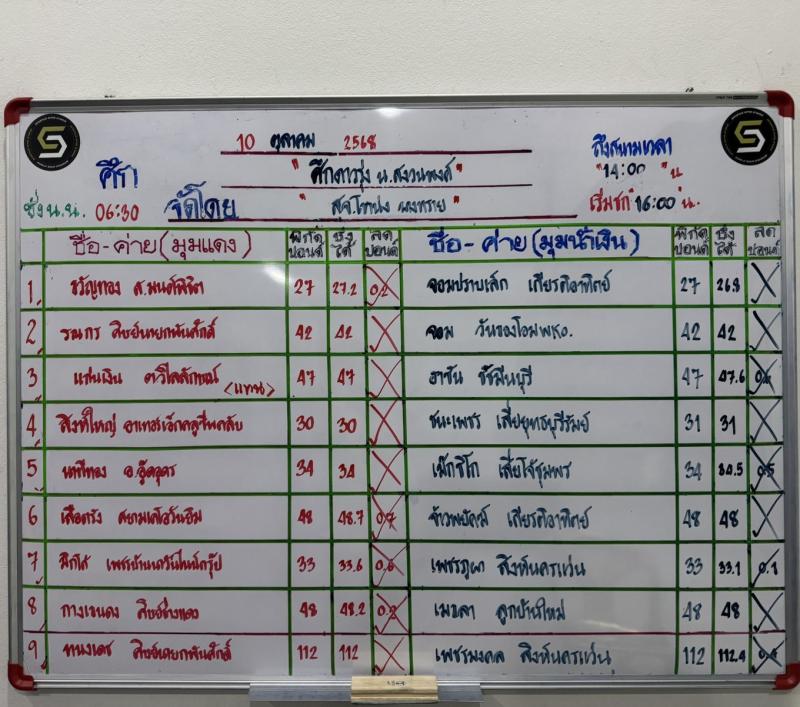 10 ตุลาคม 2568
ศึก "ศึกดาวรุ่ง น.สงวนพงศ์" ถึงสนามเวลา "14:00" น.
ชั่ง น.น. 06:30 จัดโดย เริ่มชก 16:00 น.
ชื่อ-ค่าย (มุมแดง) พิกัดปอนด์ ชั่งได้ ลดปอนด์ ชื่อ-ค่าย (มุมน้ำเงิน) พิกัดปอนด์ ชั่งได้ ลดปอนด์
1. ขวัญทอง ส.มนต์พิชิต 27 27.2 0.2 จอมปราบเล็ก เกียรติอาทิตย์ 27 26.8
2. รณกร ศิษย์นายกพันศักดิ์ 42 42 จอม 42 42
3. แก่นเงิน ต.วิไลลักษณ์ <แทน> 47 47 อาชัน ชัชมีนบุรี 47 47.6
4. สิงห์ใหญ่ 30 30 ชนะเพชร เสี่ยยุทธบุรีรัมย์ 31 31
5. อ.อู๊ดอุดร 34 34 เม็กซิโก เสี่ยโจ้ชุมพร 34 0.5
6. เสือตรัง 48 48.7 0.7 จ้าวพยัคฆ์ เกียรติอาทิตย์ 48 48
7. 33 33.6 0.6 เพชรภูผา สิงห์นครแว่น 33 33.1 0.1
8. กางเขนดง ศิษย์ช่างแดง 48 48.2 0.2 เมขลา ลูกบ้านใหม่ 48 48
9. ทนงเดช ศิษย์นายกพันศักดิ์ 112 112 เพชรมงคล สิงห์นครแว่น 112 112.4 0.4